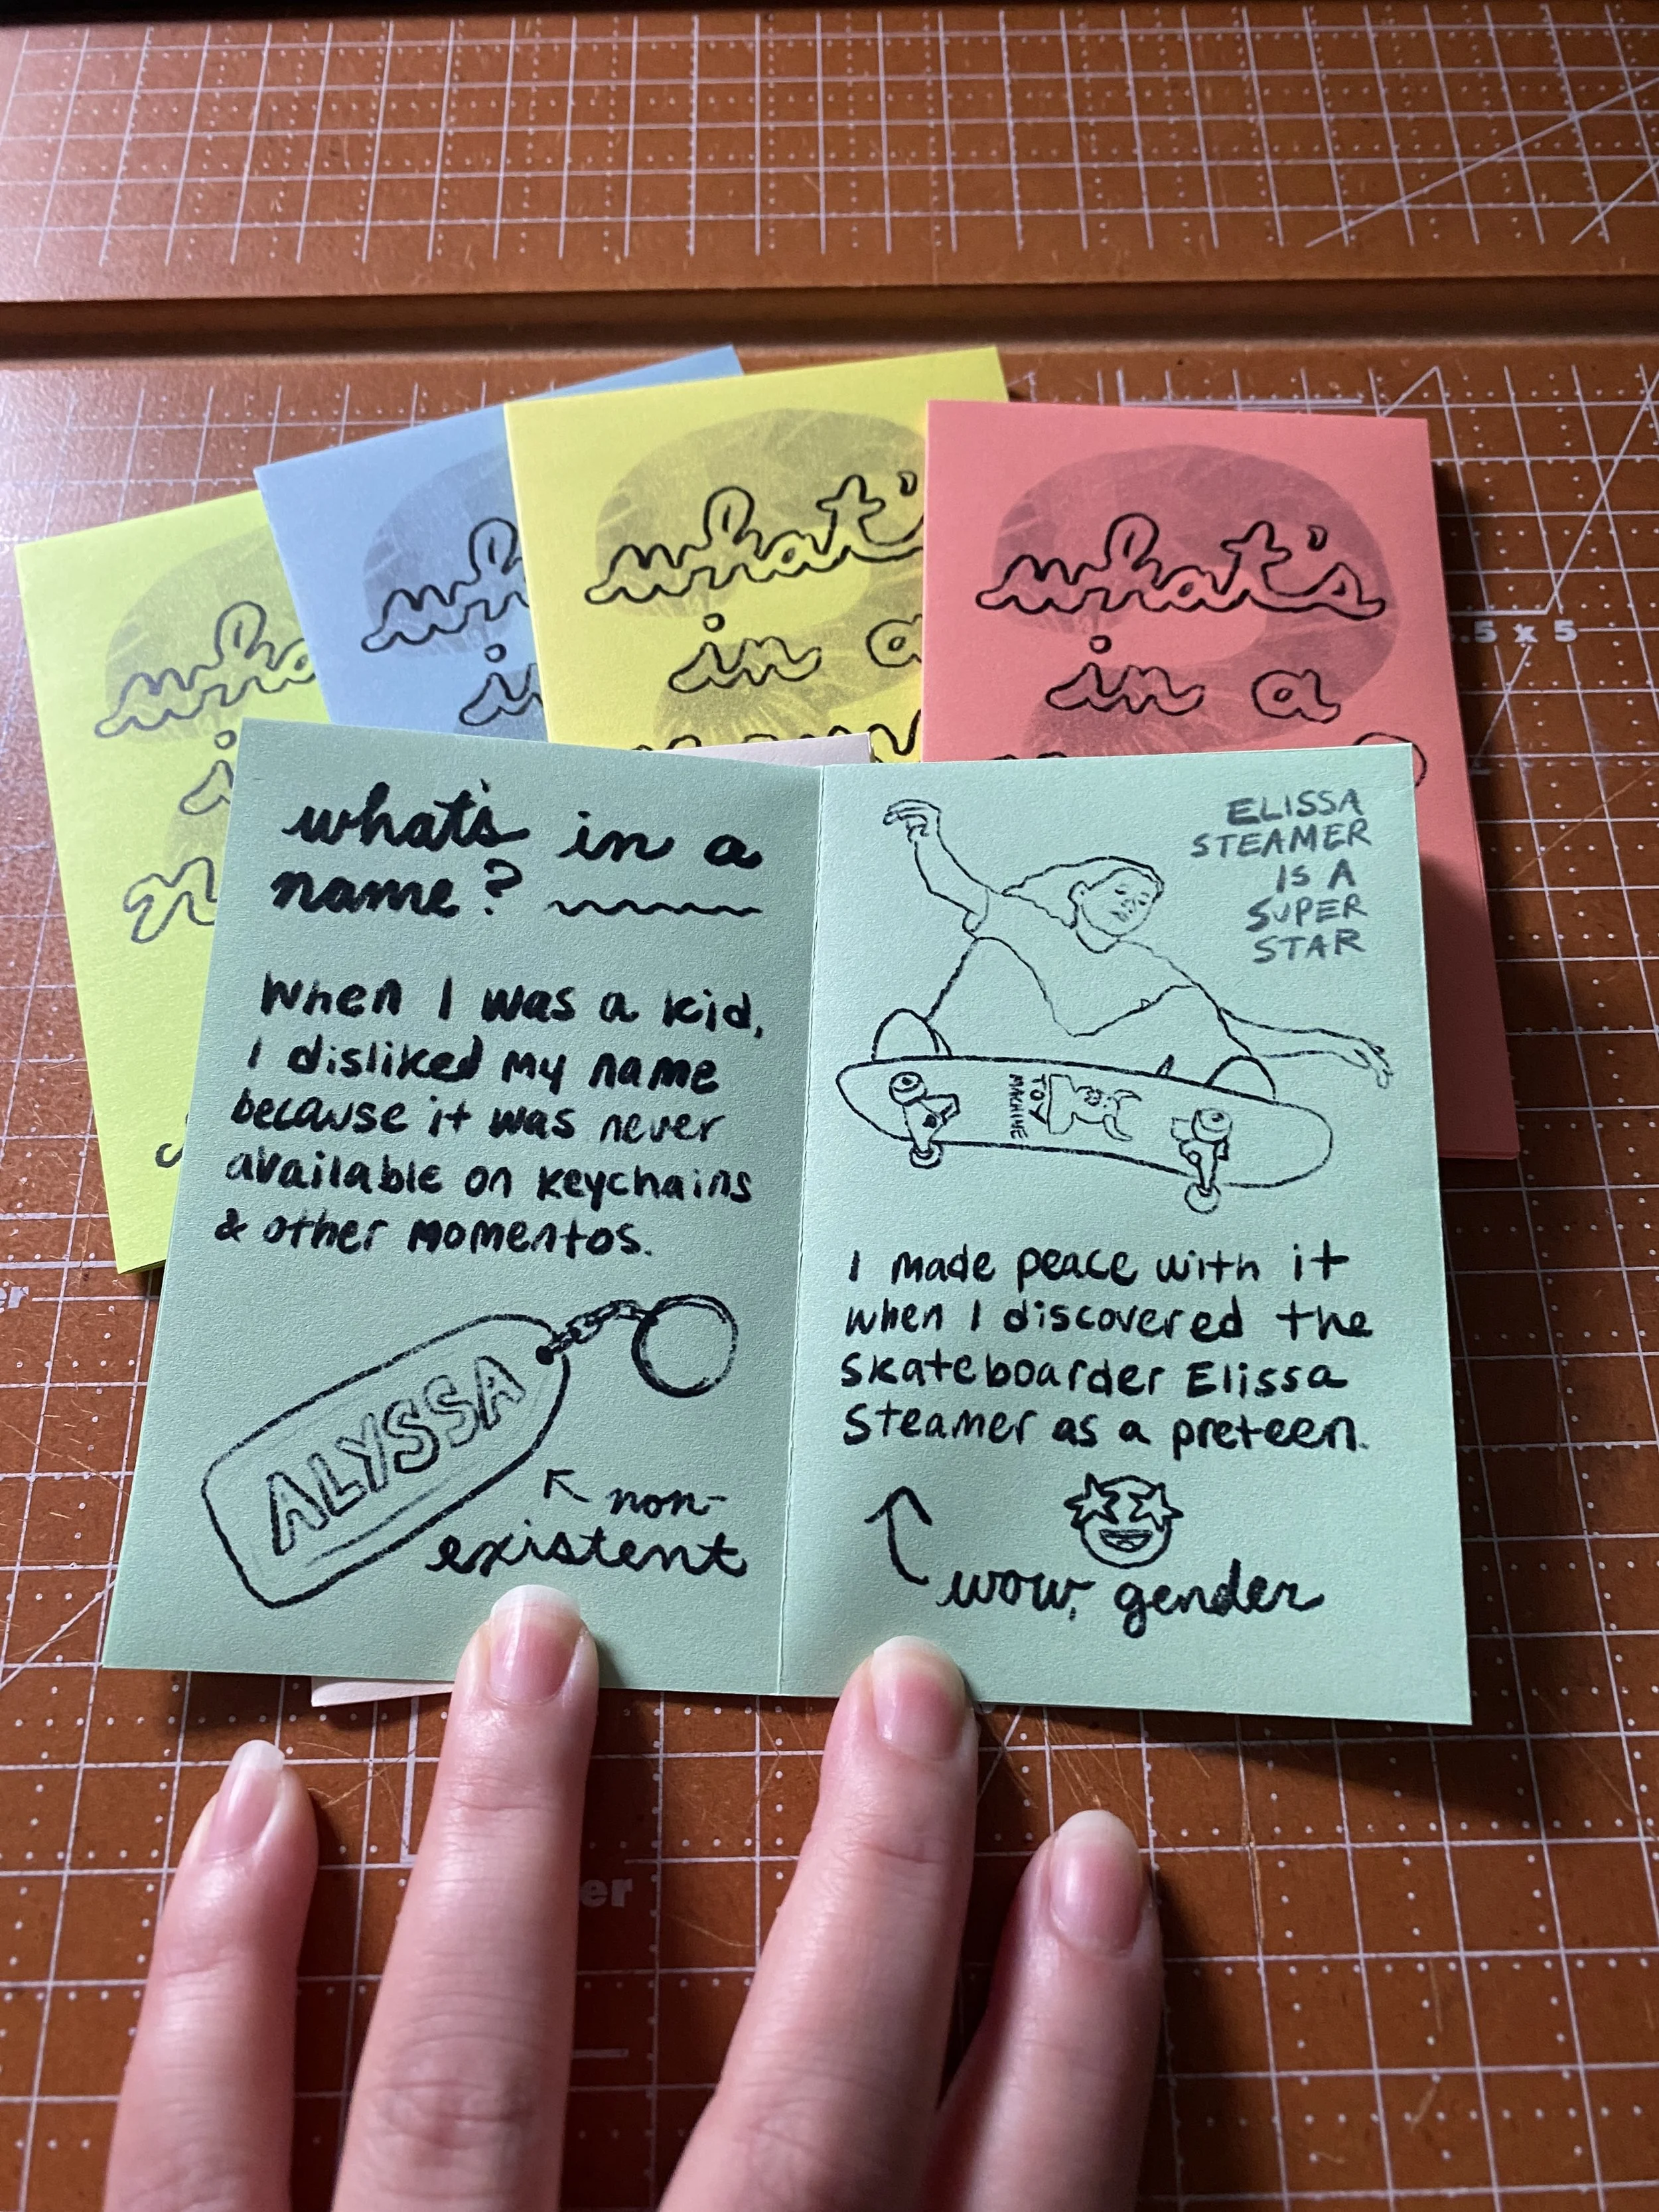 what's
in a
what's
in a
what's
in a
name? 
When I was a kid,
I disliked my name
because it was never
available on keychains
& other momentos.
ALYSSA
non-
existent
ELISSA
STEAMER
IS A
SUPER
STAR
TOY
MACHINE
I made peace with it
when I discovered the
skateboarder Elissa
Steamer as a preteen.
wow, gender
.5 x 5
er